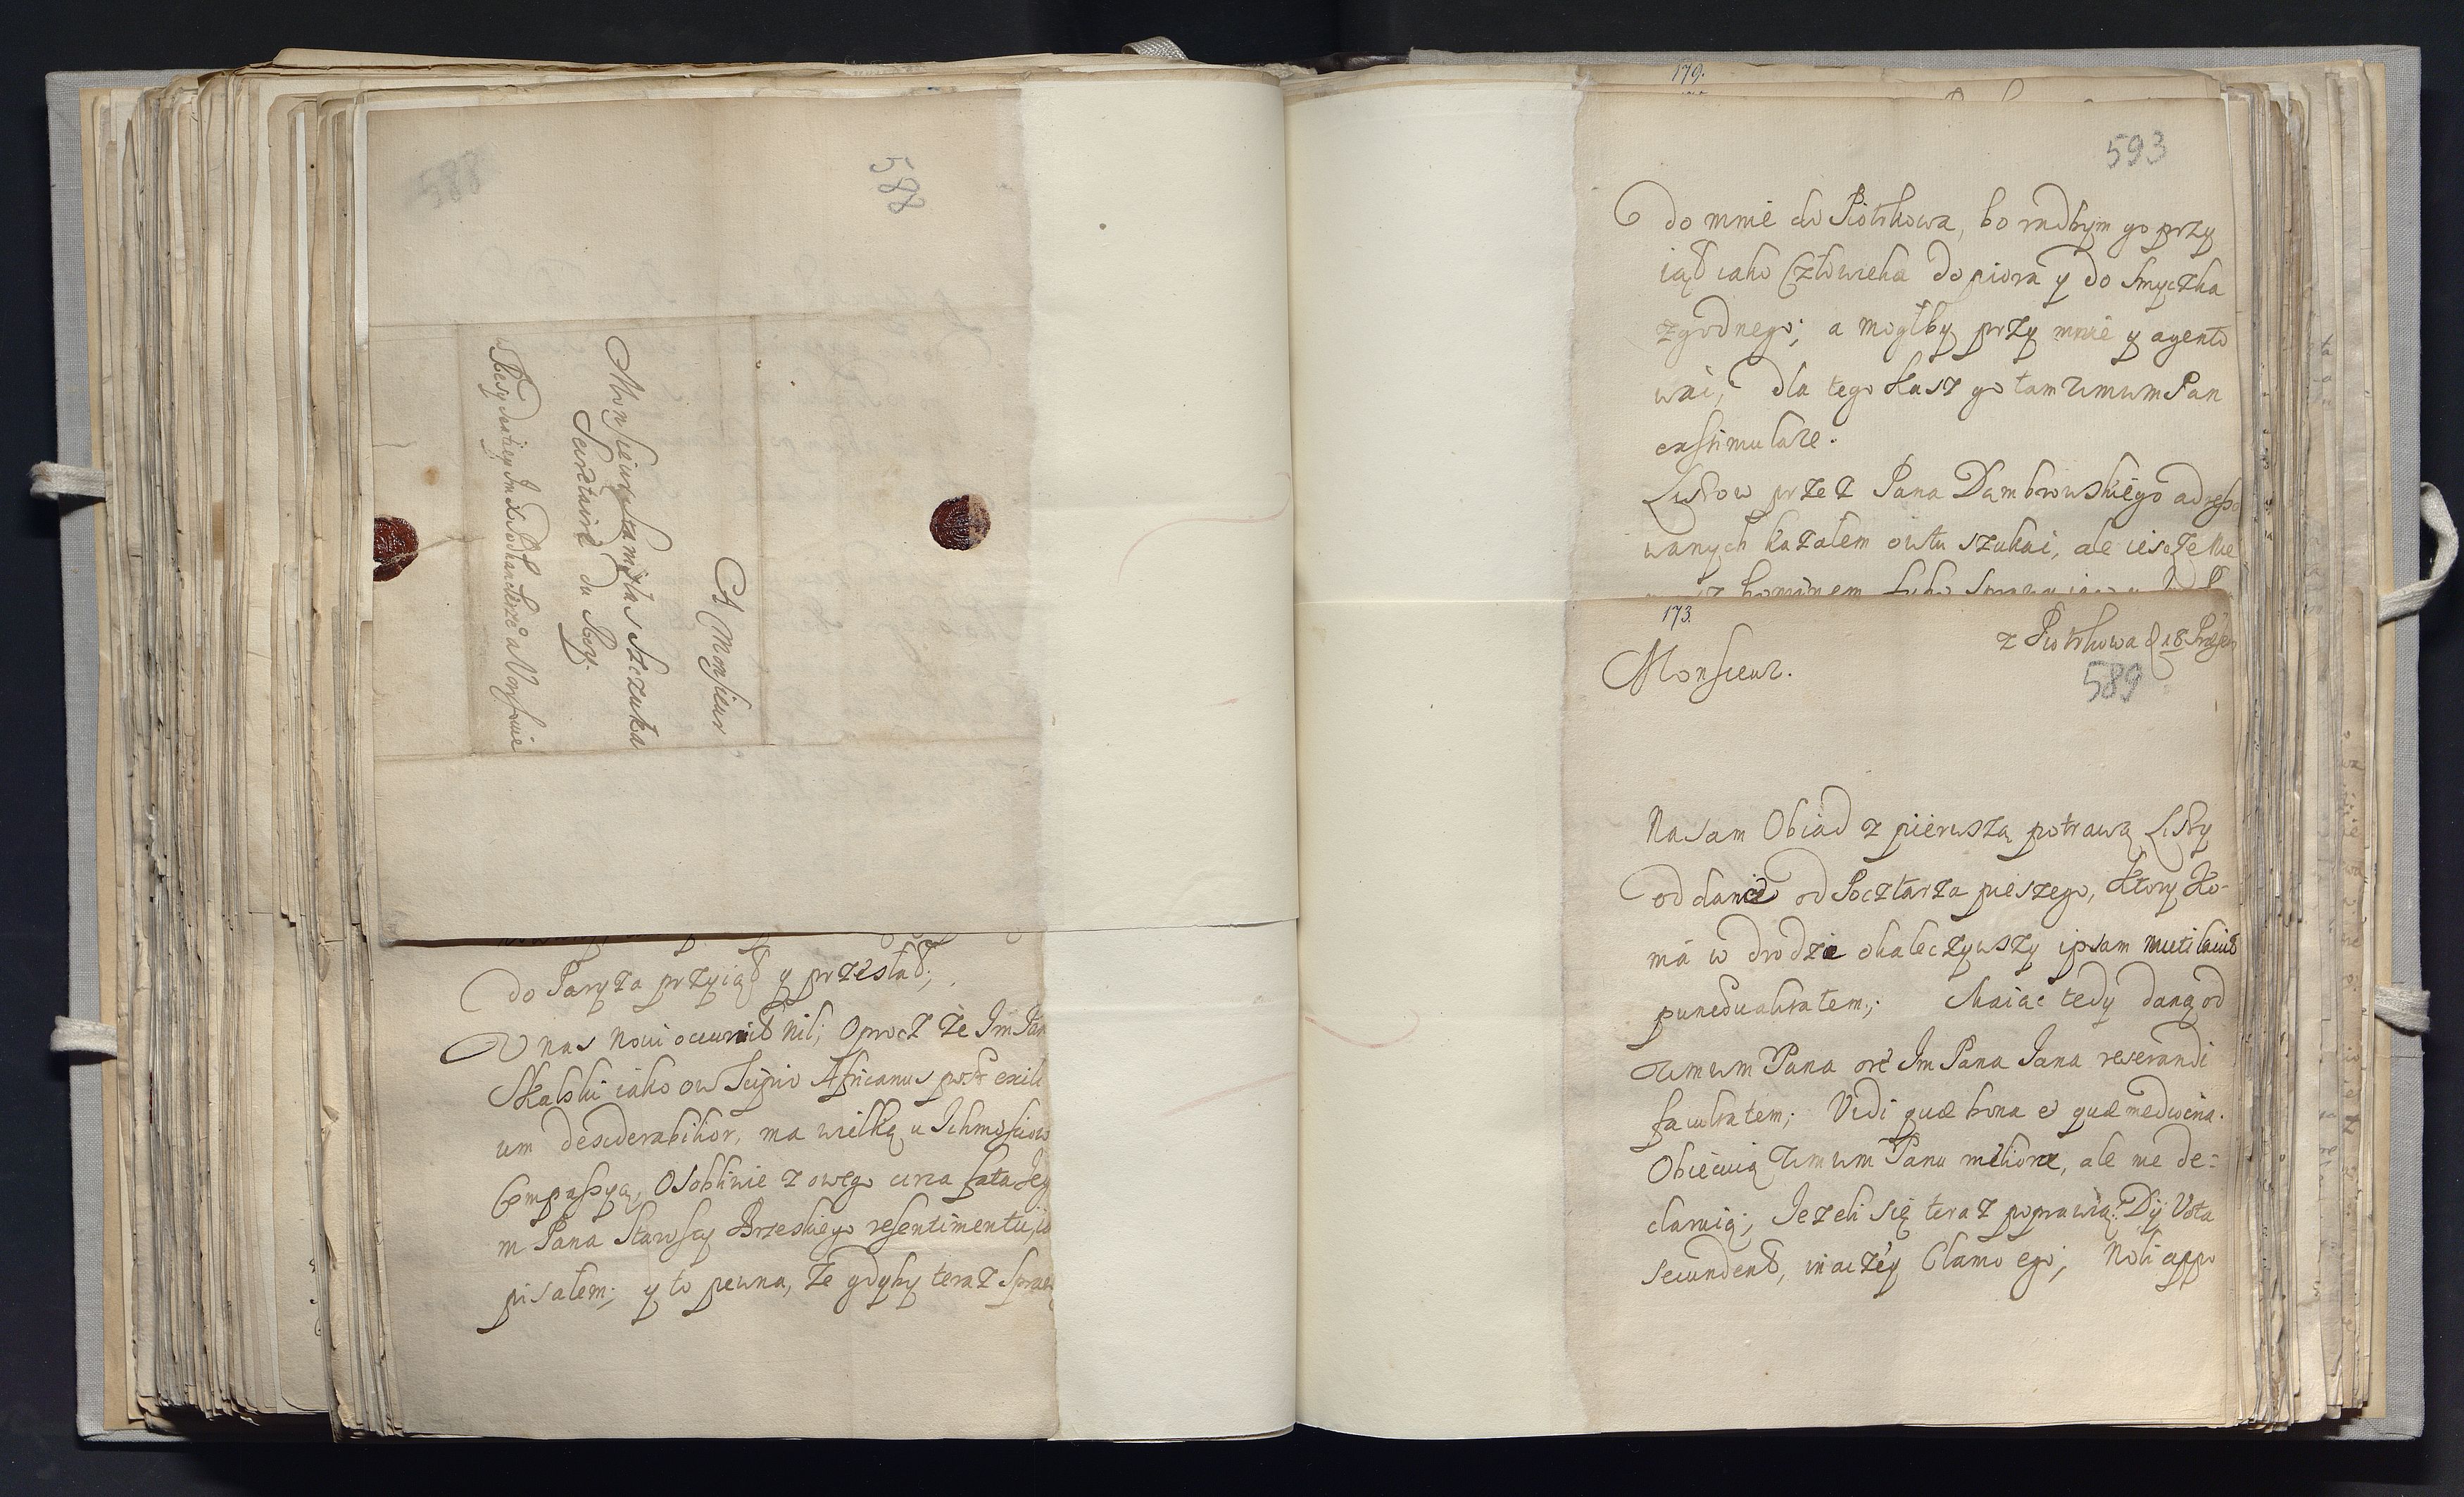 588
588
A Monsieur
Monsieur Stanislas Szczuka
Secretaire du Roy.
do Paryża przyiął y przesłał;
U nas novi occurrit nil; oprocz że Im Pan
Skalski iako ow Scipio Africanus post exili
um desiderabilior, ma wielką u Ichmościow
Compassyą, osobliwie z owego circa fata Jeg
m Pana Starosty Brzeskiego resentimentu, io
pisałem; y to pewna, że gdyby teraz
179.
593
do mnie do Piotrkowa, bo radbym go przy
iął iako Człowieka do piora y do smyczka
zgodnego; a mogłby przy mnie y agento
wać, dla tego każ go tam Wmwm Pan
exstimulare.
Listow przez Pana Dambrowskiego adresso
wanych kazałem owtu szukać, ale iescze nie
173.
z Piotrkowa d 18
Monsieur.
589
Na sam Obiad z pierwszą potrawą Listy
oddano od Pocztarza pieszego, ktory Ko-
nia w drodze okaleczywszy ipsam mutilavit
punctualitatem; Maiąc tedy daną od
Wmwm Pana ore Im Pana Jana reserandi
facultatem; Vidi quæ bona et quæ mediocria.
Obiecuią Wmwm Panu meliora, ale nie de=
claruią; Jeżeli się teraz poprawią: Dij Vota
secundent, inaczey Clamo ego; Noli appo